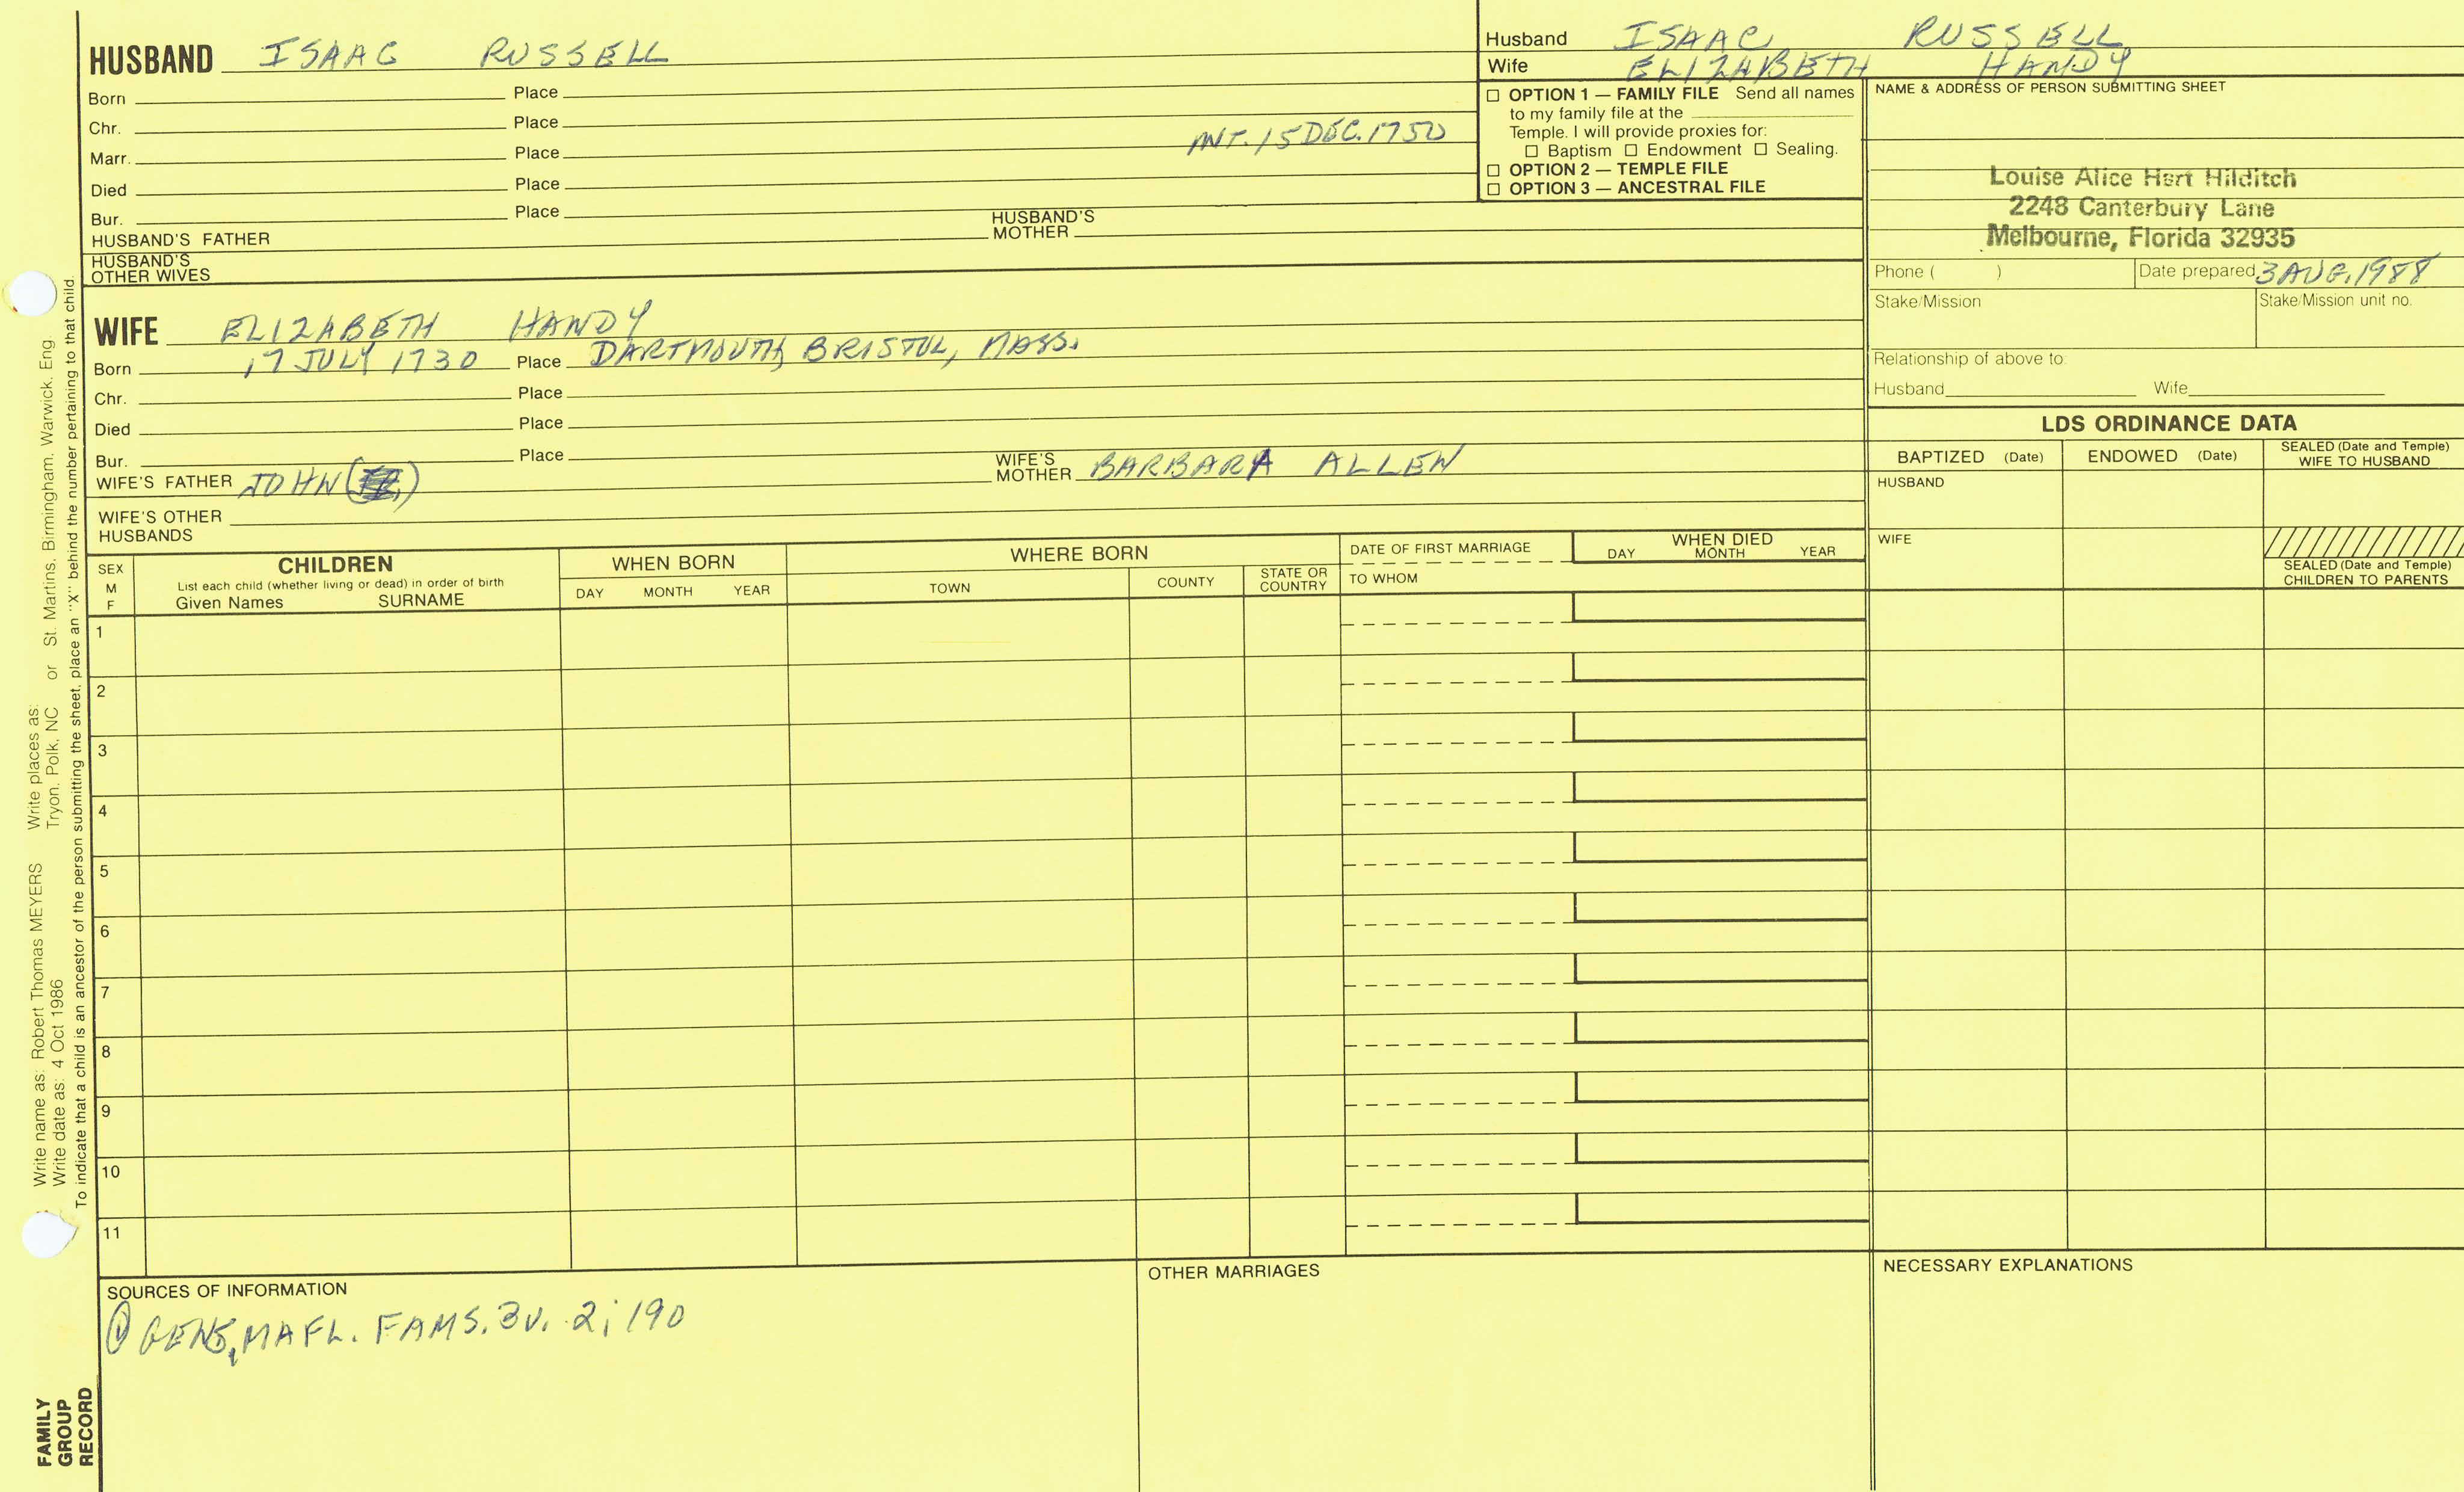 HUSBAND ISAAC RUSSELL
Born Place
Chr. Place
Marr. Place INT. 15 DEC. 1750
Died Place
Bur. Place
HUSBAND'S FATHER HUSBAND'S MOTHER
HUSBAND'S OTHER WIVES
WIFE ELIZABETH HANDY
Born 17 JULY 1730 Place DARTMOUTH, BRISTOL, MASS.
Chr. Place
Died Place
Bur. Place
WIFE'S FATHER JOHN WIFE'S MOTHER BARBARA ALLEN
WIFE'S OTHER HUSBANDS
Husband ISAAC RUSSELL
Wife ELIZABETH HANDY
☐ OPTION 1 — FAMILY FILE Send all names
to my family file at the
Temple. I will provide proxies for:
☐ Baptism ☐ Endowment ☐ Sealing.
☐ OPTION 2 — TEMPLE FILE
☐ OPTION 3 — ANCESTRAL FILE
NAME & ADDRESS OF PERSON SUBMITTING SHEET
Louise Alice Hart Hilditch
2248 Canterbury Lane
Melbourne, Florida 32935
Phone ( ) Date prepared 3 AUG. 1988
Stake/Mission Stake/Mission unit no.
Relationship of above to:
Husband Wife
LDS ORDINANCE DATA
BAPTIZED (Date) ENDOWED (Date) SEALED (Date and Temple) WIFE TO HUSBAND
HUSBAND
WIFE
SEALED (Date and Temple)
CHILDREN TO PARENTS
SEX M F
CHILDREN
List each child (whether living or dead) in order of birth
Given Names SURNAME
WHEN BORN
DAY MONTH YEAR
WHERE BORN
TOWN COUNTY STATE OR COUNTRY
DATE OF FIRST MARRIAGE
TO WHOM
WHEN DIED
DAY MONTH YEAR
1
2
3
4
5
6
7
8
9
10
11
SOURCES OF INFORMATION
GENS, MAFL. FAMS. 3V. 2; 190
OTHER MARRIAGES
NECESSARY EXPLANATIONS
Write name as: Robert Thomas MEYERS Write places as:
Write date as: 4 Oct 1986 Tryon, Polk, NC or St. Martins, Birmingham, Warwick, Eng
To indicate that a child is an ancestor of the person submitting the sheet, place an "X" behind the number pertaining to that child.
FAMILY
GROUP
RECORD